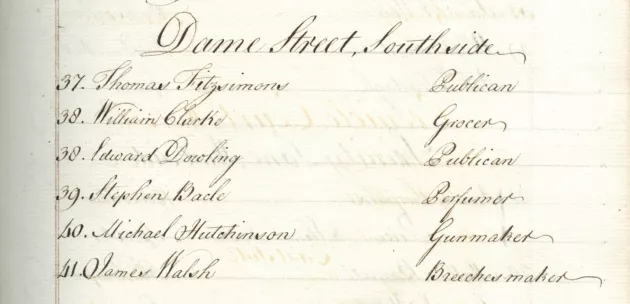 Dame Street, Southside
37. Thomas Fitzsimons Publican
38. William Clarke Grocer
38. Edward Dowling Publican
39. Stephen Bacle Perfumer
40. Michael Hutchinson Gunmaker
41. James Walsh Breeches maker